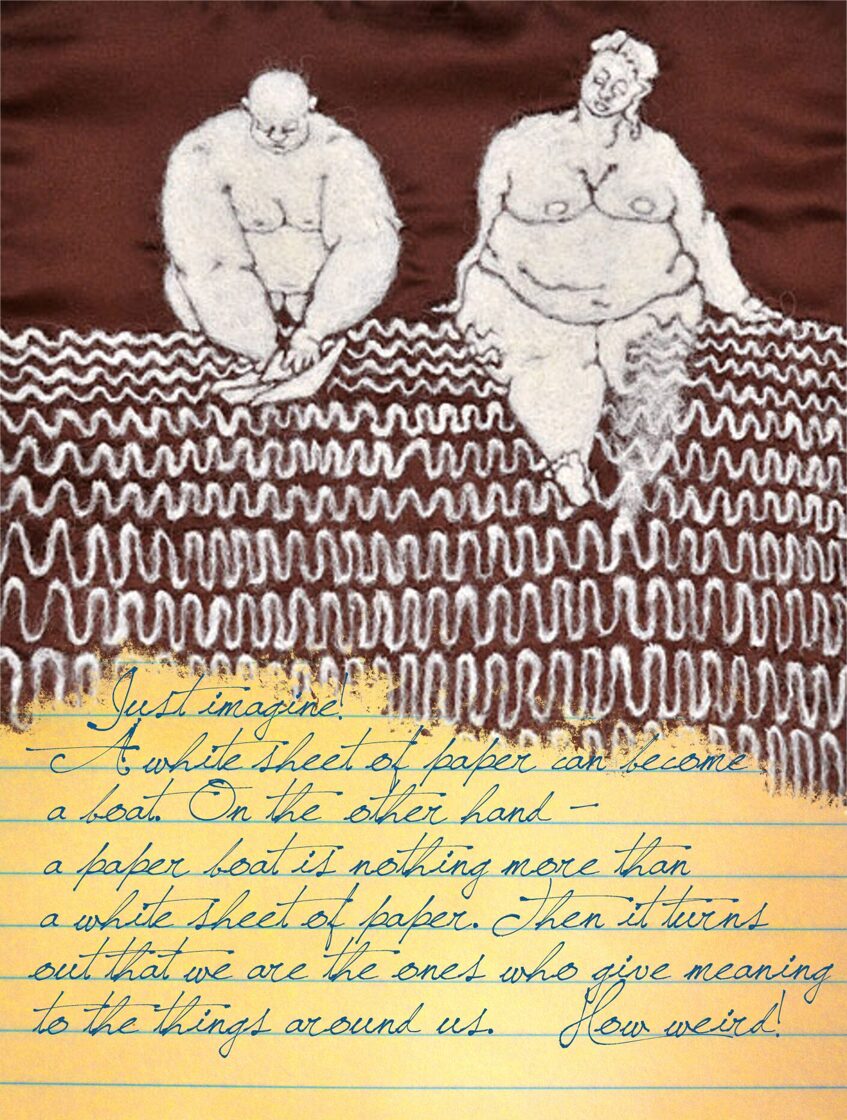 Just imagine!
A white sheet of paper can become
a boat. On the other hand –
a paper boat is nothing more than
a white sheet of paper. Then it turns
out that we are the ones who give meaning
to the things around us. How weird!